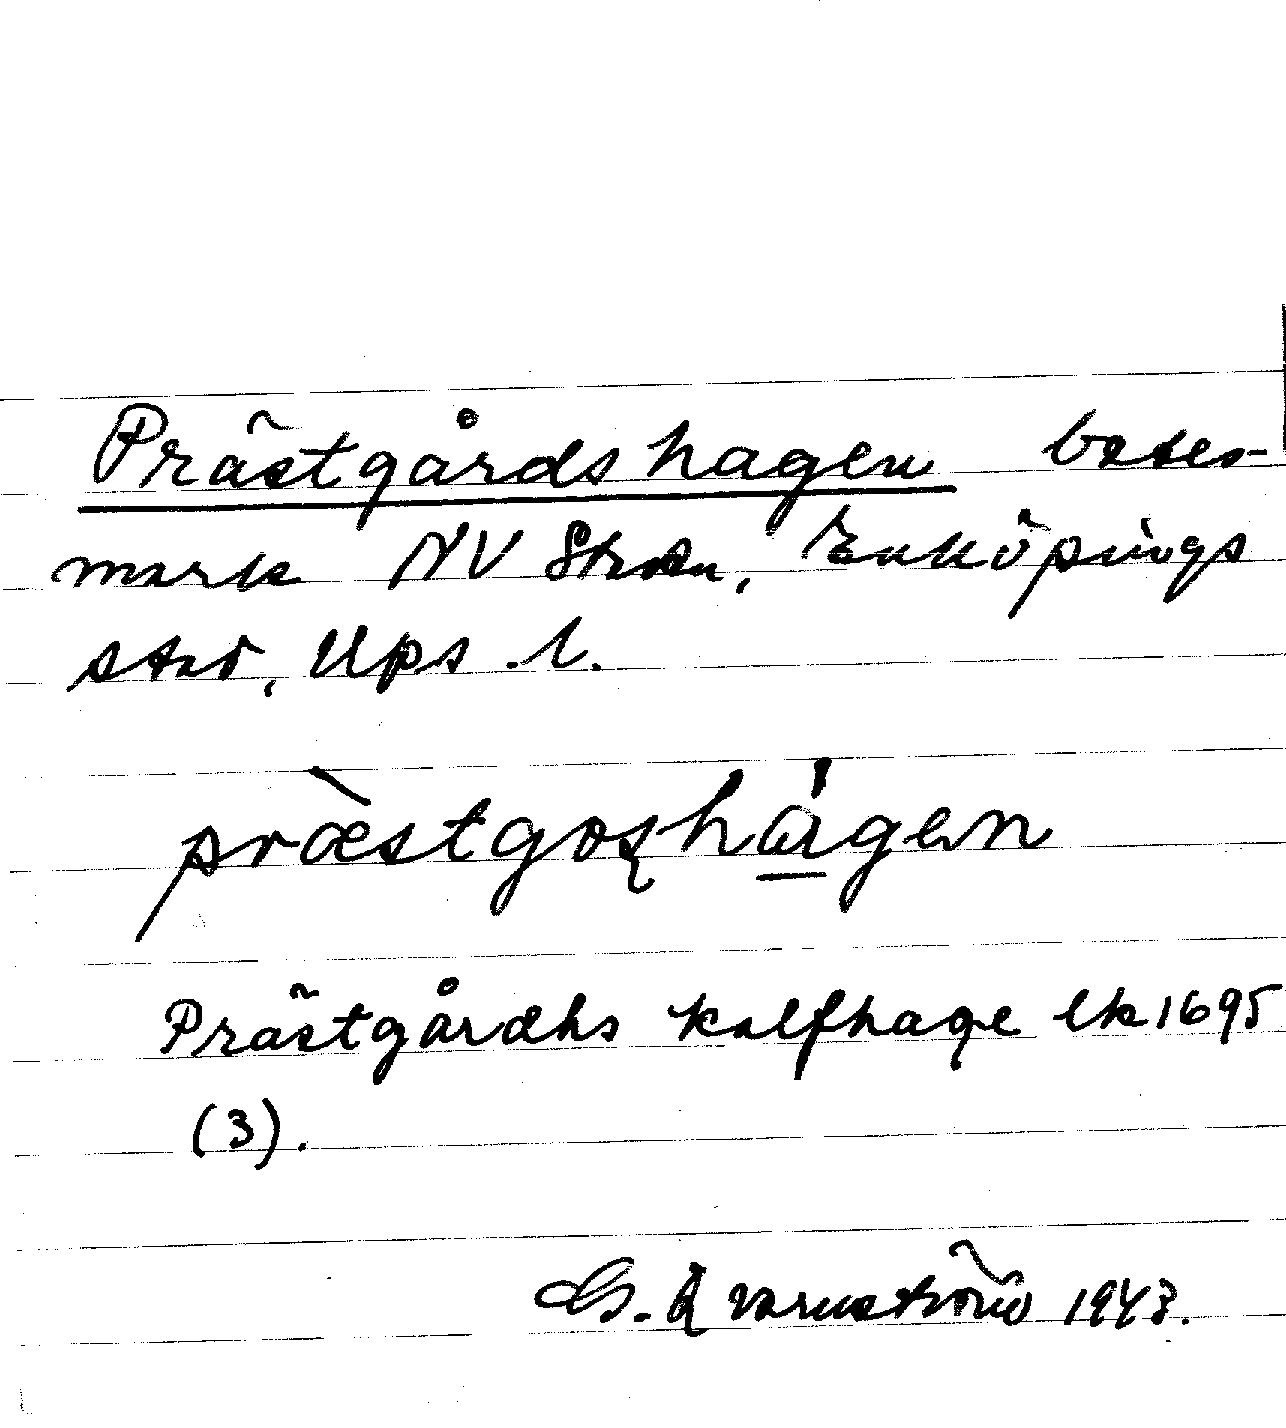 Prästgårdshagen betes-
mark NV Stran, Enköpings
stad, Ups. l.
præ̀stgoʂhágen
Prästgårdhs kalfhage lk 1695
(3).
G. Qvarnström 1943.